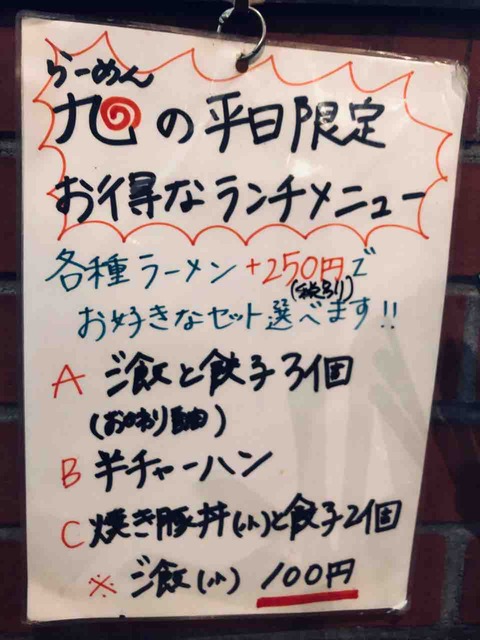 らーめん
旭の平日限定
お得なランチメニュー
各種ラーメン+250円で
(税別)
お好きなセット選べます!!
A ご飯と餃子3個
(おかわり自由)
B 半チャーハン
C 焼き豚丼(小)と餃子2個
※ ご飯(小) 100円